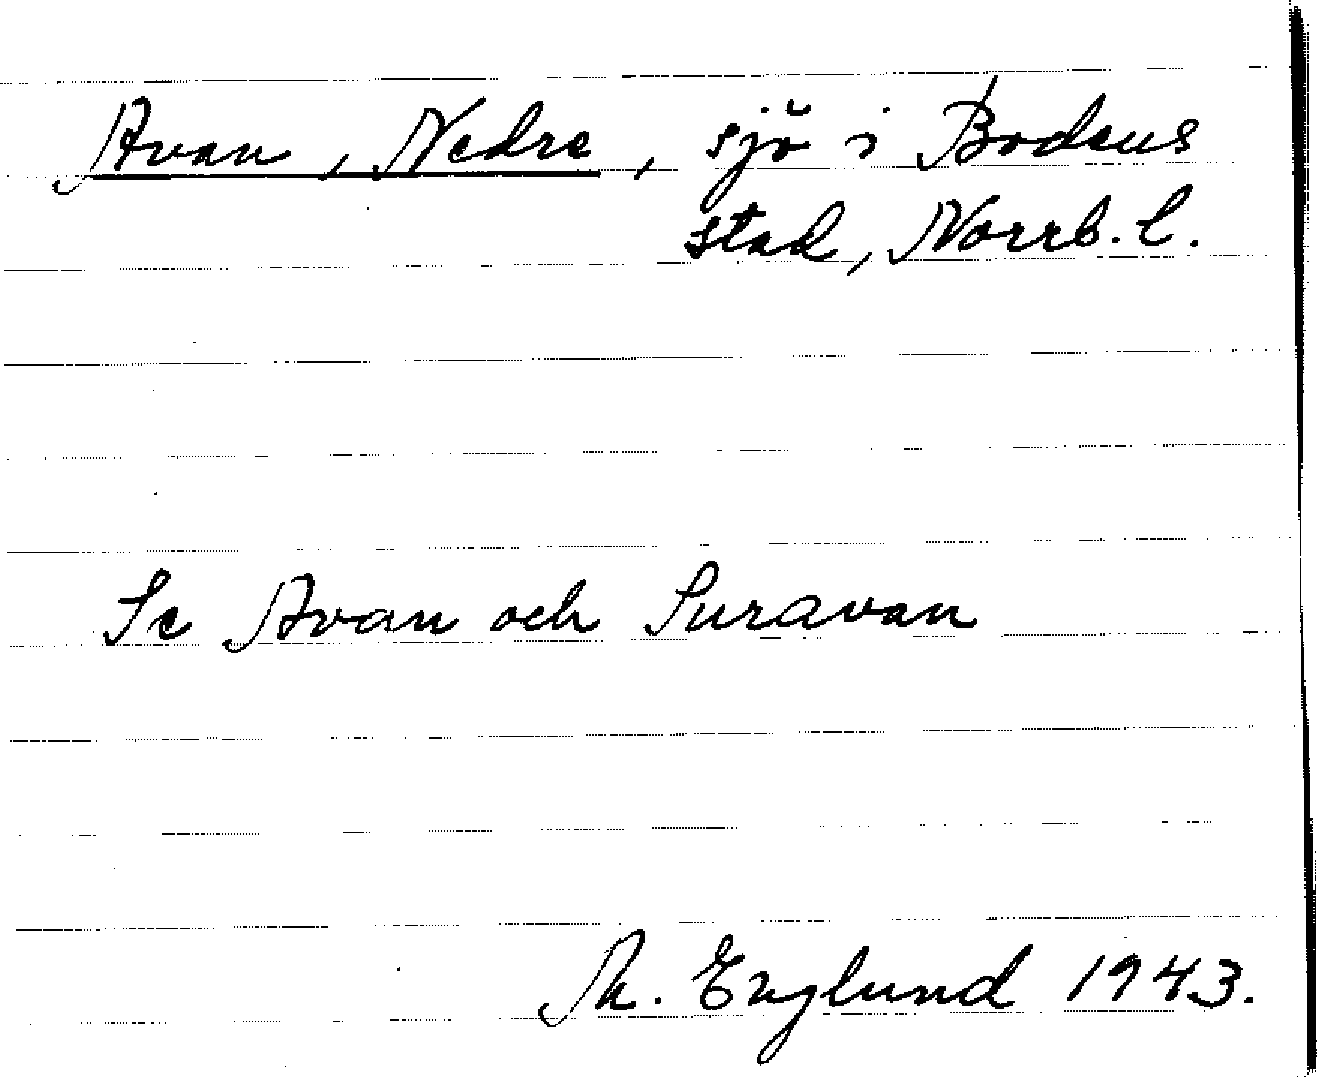 Avan, Nedre, sjö i Bodens
stad, Norrb. l.
Se Avan och Suravan
M. Englund 1943.